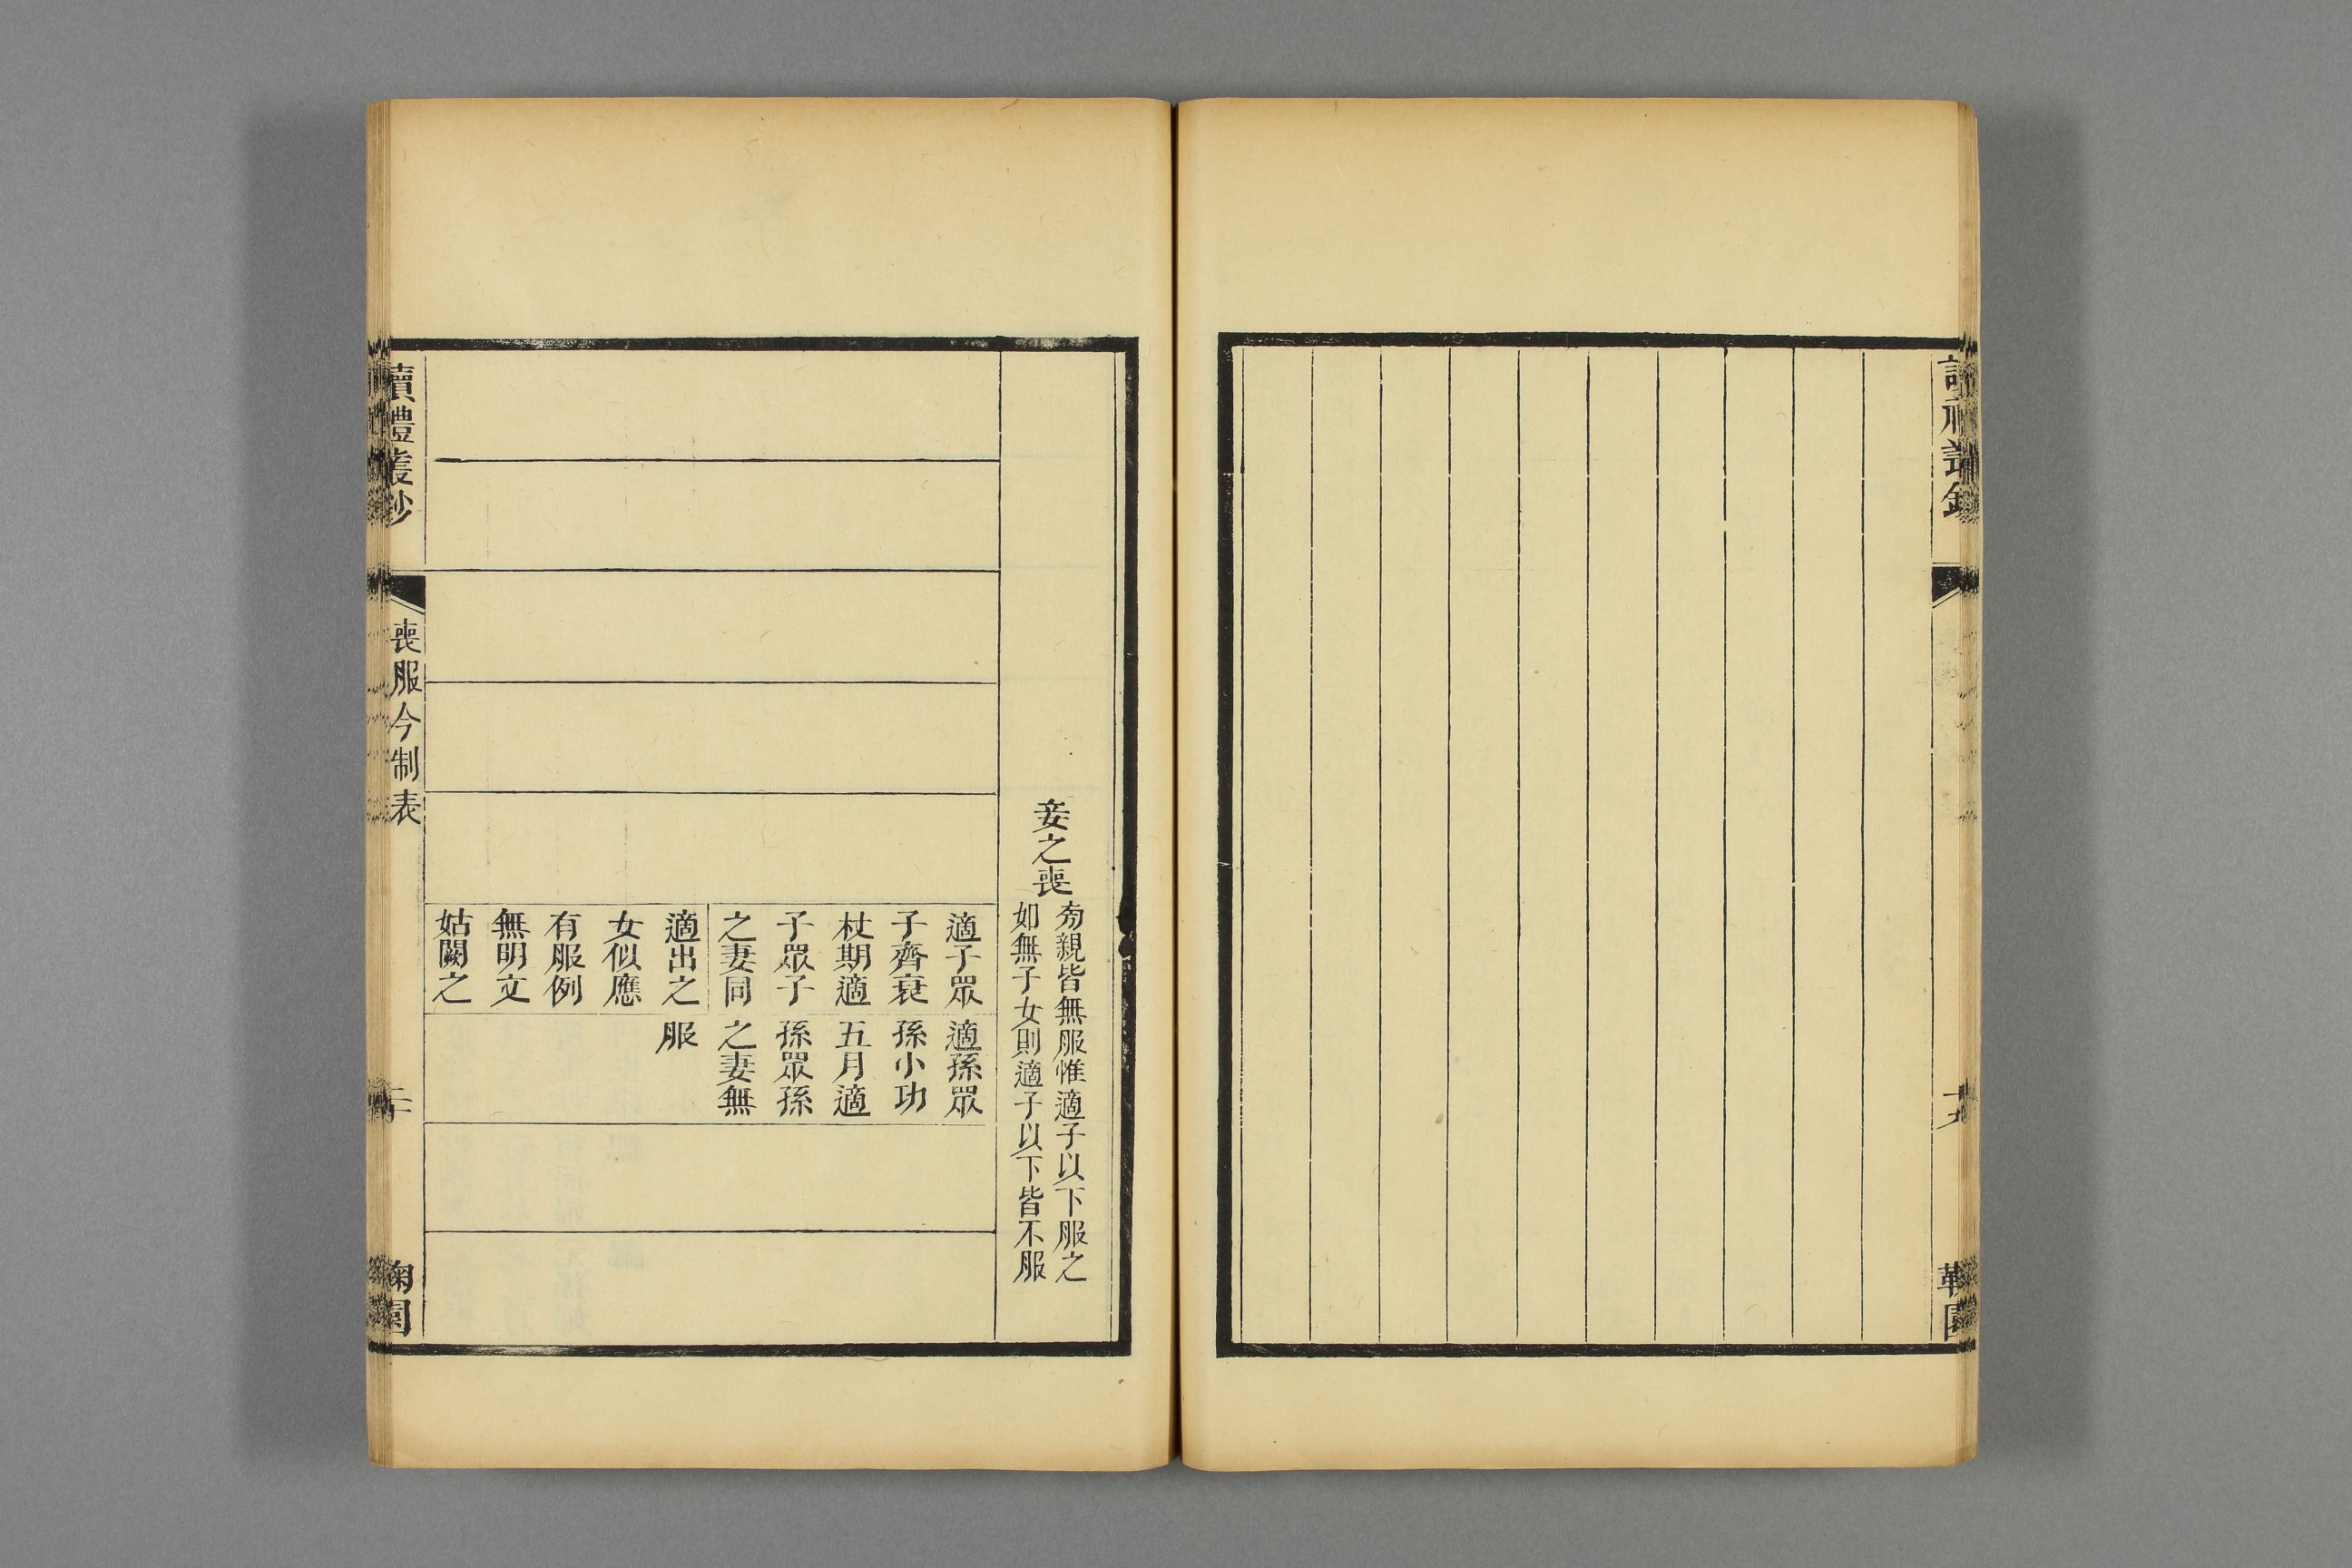 十九
妾之喪
旁親皆無服惟適子以下服之
如無子女則適子以下皆不服
適子眾
子齊衰
杖期適
子眾子
之妻同
適出之
女似應
有服例
無明文
姑闕之
適孫眾
孫小功
五月適
孫眾孫
之妻無
服
讀禮叢鈔
喪服今制表
二十
鞠園